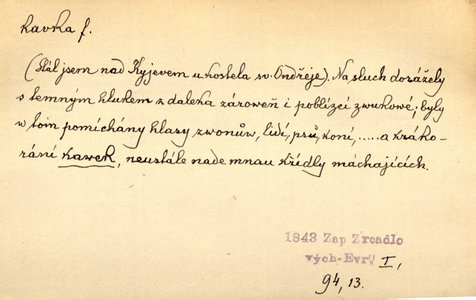 kavka f.
(Stál jsem nad Kyjevem u kostela sv. Ondřeje). Na sluch dorážely
s temným hlukem z daleka zároveň i poblízcí zwukowé; byly
w tom pomíchány hlasy zwonůw, lidí, psů, koní, ..... a kráko-
rání kawek, neustále nade mnau křídly máchajících.
1843 Zap Zrcadlo
vých-Evr. I,
94,13.